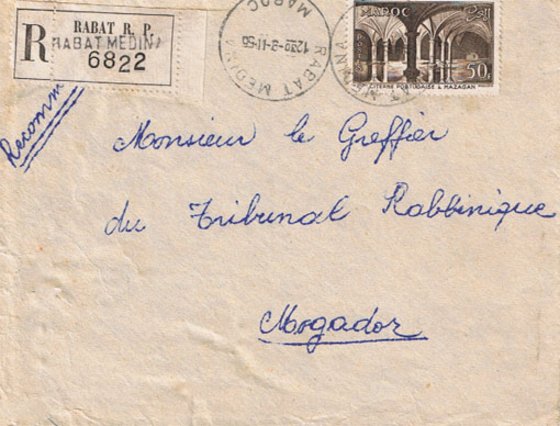 R
RABAT R. P.
RABAT MEDINA
6822
RABAT MEDINA
MAROC
1230 2-11-56
MAROC
50F
CITERNE PORTUGAISE A MAZAGAN
Recomm
Monsieur le Greffier
du Tribunal Rabbinique
Mogador